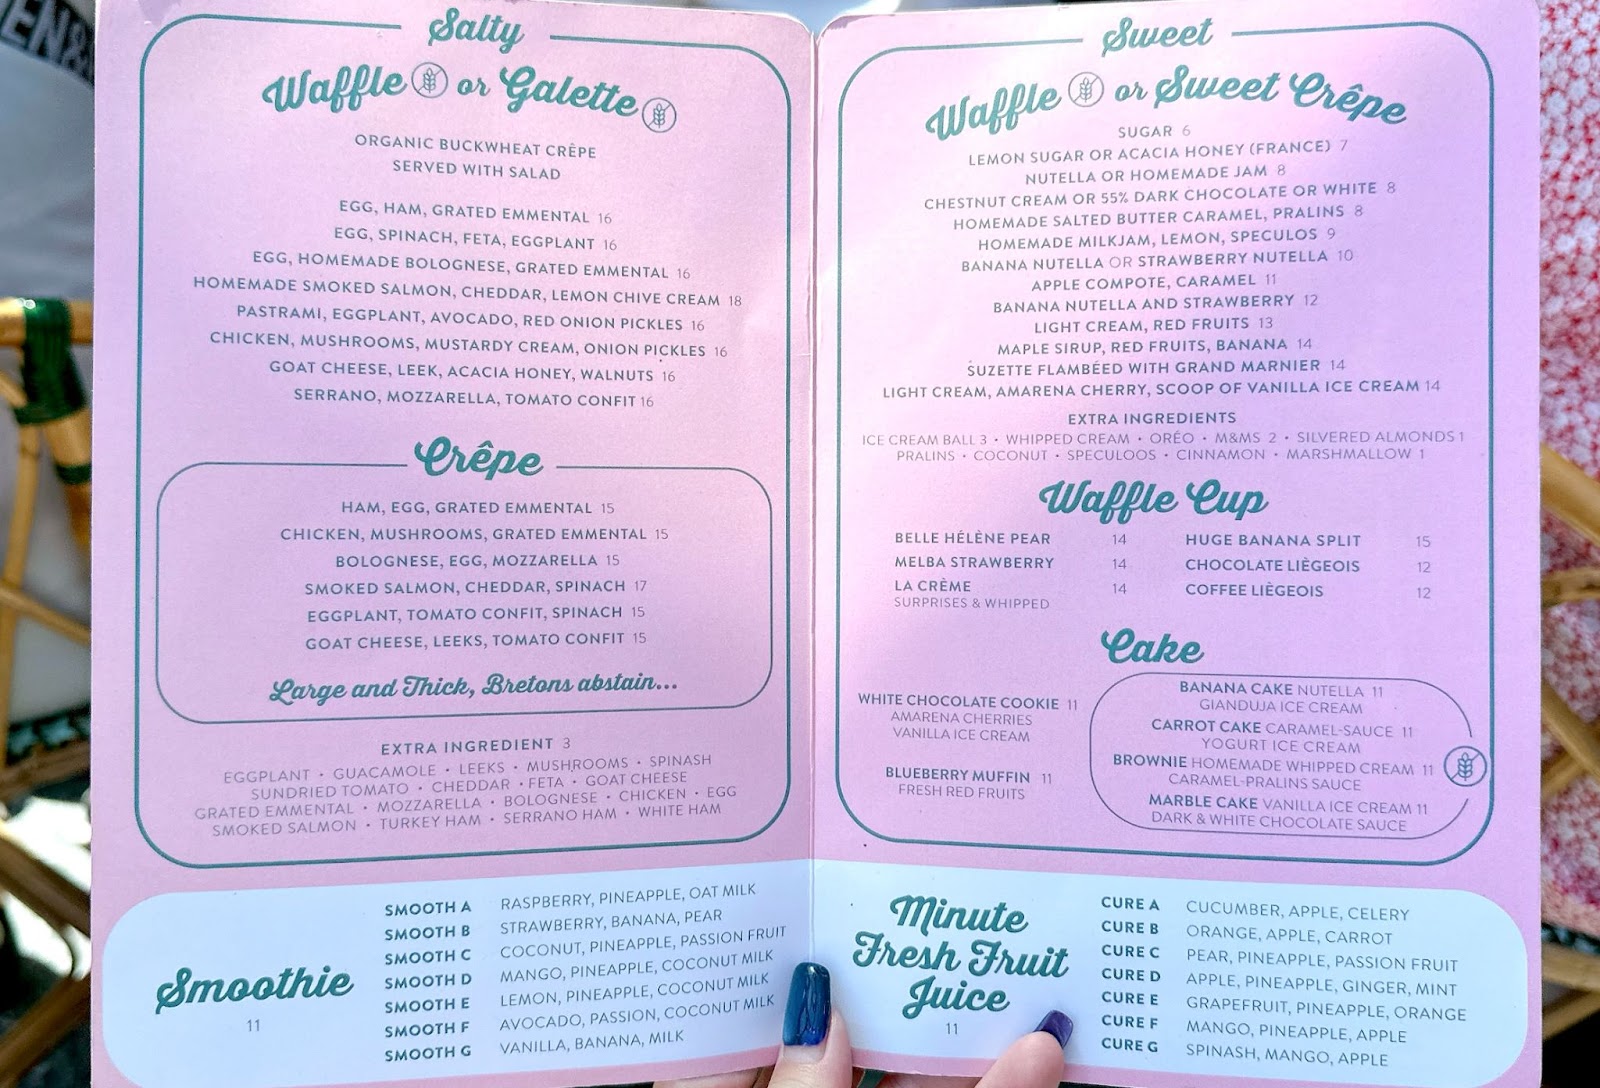 Salty
Waffle or Galette
ORGANIC BUCKWHEAT CRÊPE
SERVED WITH SALAD
EGG, HAM, GRATED EMMENTAL 16
EGG, SPINACH, FETA, EGGPLANT 16
EGG, HOMEMADE BOLOGNESE, GRATED EMMENTAL 16
HOMEMADE SMOKED SALMON, CHEDDAR, LEMON CHIVE CREAM 18
PASTRAMI, EGGPLANT, AVOCADO, RED ONION PICKLES 16
CHICKEN, MUSHROOMS, MUSTARDY CREAM, ONION PICKLES 16
GOAT CHEESE, LEEK, ACACIA HONEY, WALNUTS 16
SERRANO, MOZZARELLA, TOMATO CONFIT 16
Crêpe
HAM, EGG, GRATED EMMENTAL 15
CHICKEN, MUSHROOMS, GRATED EMMENTAL 15
BOLOGNESE, EGG, MOZZARELLA 15
SMOKED SALMON, CHEDDAR, SPINACH 17
EGGPLANT, TOMATO CONFIT, SPINACH 15
GOAT CHEESE, LEEKS, TOMATO CONFIT 15
Large and Thick, Bretons abstain...
EXTRA INGREDIENT 3
EGGPLANT • GUACAMOLE • LEEKS • MUSHROOMS • SPINASH
SUNDRIED TOMATO • CHEDDAR • FETA • GOAT CHEESE
GRATED EMMENTAL • MOZZARELLA • BOLOGNESE • CHICKEN • EGG
SMOKED SALMON • TURKEY HAM • SERRANO HAM • WHITE HAM
Smoothie
11
SMOOTH A RASPBERRY, PINEAPPLE, OAT MILK
SMOOTH B STRAWBERRY, BANANA, PEAR
SMOOTH C COCONUT, PINEAPPLE, PASSION FRUIT
SMOOTH D MANGO, PINEAPPLE, COCONUT MILK
SMOOTH E LEMON, PINEAPPLE, COCONUT MILK
SMOOTH F AVOCADO, PASSION, COCONUT MILK
SMOOTH G VANILLA, BANANA, MILK
Sweet
Waffle or Sweet Crêpe
SUGAR 6
LEMON SUGAR OR ACACIA HONEY (FRANCE) 7
NUTELLA OR HOMEMADE JAM 8
CHESTNUT CREAM OR 55% DARK CHOCOLATE OR WHITE 8
HOMEMADE SALTED BUTTER CARAMEL, PRALINS 8
HOMEMADE MILKJAM, LEMON, SPECULOS 9
BANANA NUTELLA OR STRAWBERRY NUTELLA 10
APPLE COMPOTE, CARAMEL 11
BANANA NUTELLA AND STRAWBERRY 12
LIGHT CREAM, RED FRUITS 13
MAPLE SIRUP, RED FRUITS, BANANA 14
SUZETTE FLAMBÉED WITH GRAND MARNIER 14
LIGHT CREAM, AMARENA CHERRY, SCOOP OF VANILLA ICE CREAM 14
EXTRA INGREDIENTS
ICE CREAM BALL 3 • WHIPPED CREAM • ORÉO • M&MS 2 • SILVERED ALMONDS 1
PRALINS • COCONUT • SPECULOOS • CINNAMON • MARSHMALLOW 1
Waffle Cup
BELLE HÉLÈNE PEAR 14
MELBA STRAWBERRY 14
LA CRÈME 14
SURPRISES & WHIPPED
HUGE BANANA SPLIT 15
CHOCOLATE LIÈGEOIS 12
COFFEE LIÈGEOIS 12
Cake
WHITE CHOCOLATE COOKIE 11
AMARENA CHERRIES
VANILLA ICE CREAM
BLUEBERRY MUFFIN 11
FRESH RED FRUITS
BANANA CAKE NUTELLA 11
GIANDUJA ICE CREAM
CARROT CAKE CARAMEL-SAUCE 11
YOGURT ICE CREAM
BROWNIE HOMEMADE WHIPPED CREAM 11
CARAMEL-PRALINS SAUCE
MARBLE CAKE VANILLA ICE CREAM 11
DARK & WHITE CHOCOLATE SAUCE
Minute
Fresh Fruit
Juice
11
CURE A CUCUMBER, APPLE, CELERY
CURE B ORANGE, APPLE, CARROT
CURE C PEAR, PINEAPPLE, PASSION FRUIT
CURE D APPLE, PINEAPPLE, GINGER, MINT
CURE E GRAPEFRUIT, PINEAPPLE, ORANGE
CURE F MANGO, PINEAPPLE, APPLE
CURE G SPINASH, MANGO, APPLE